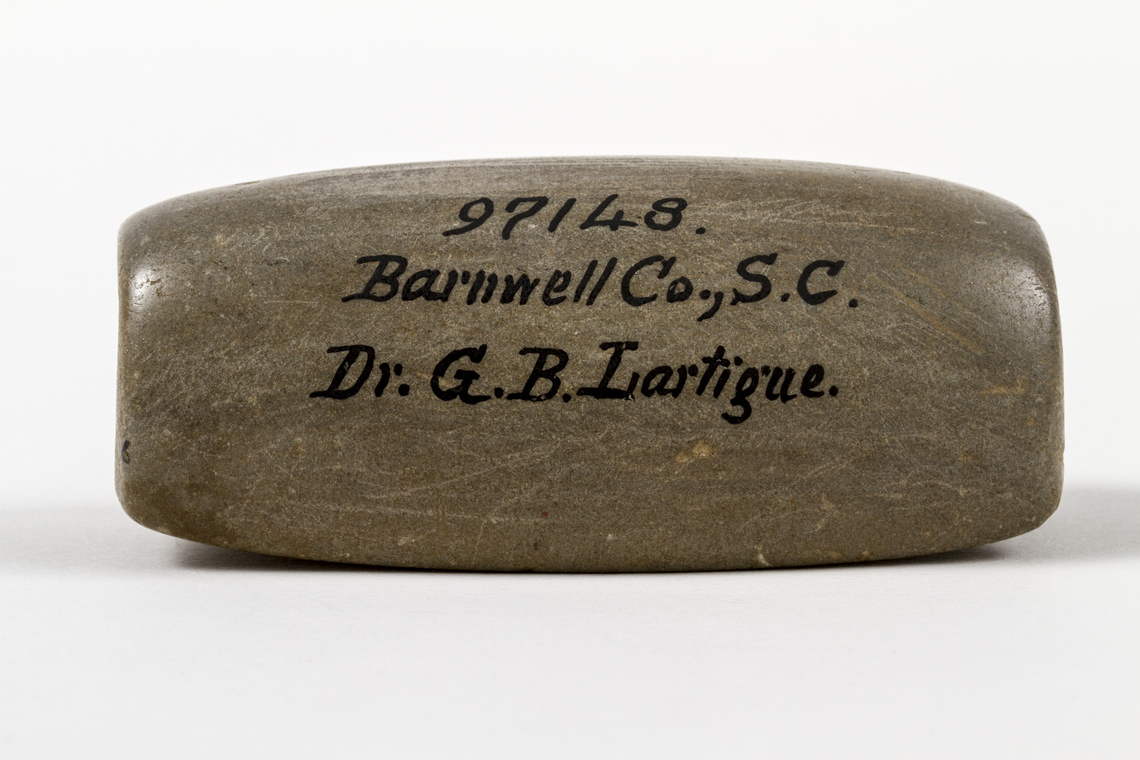 97148.
Barnwell Co., S.C.
Dr. G.B. Lartigue.
6